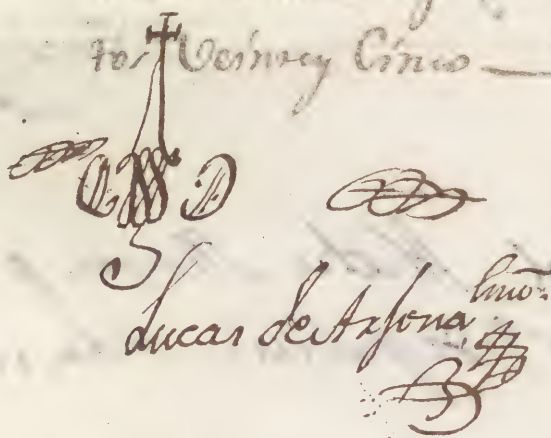 tos Veinte y Cinco
Lucas de Arjona